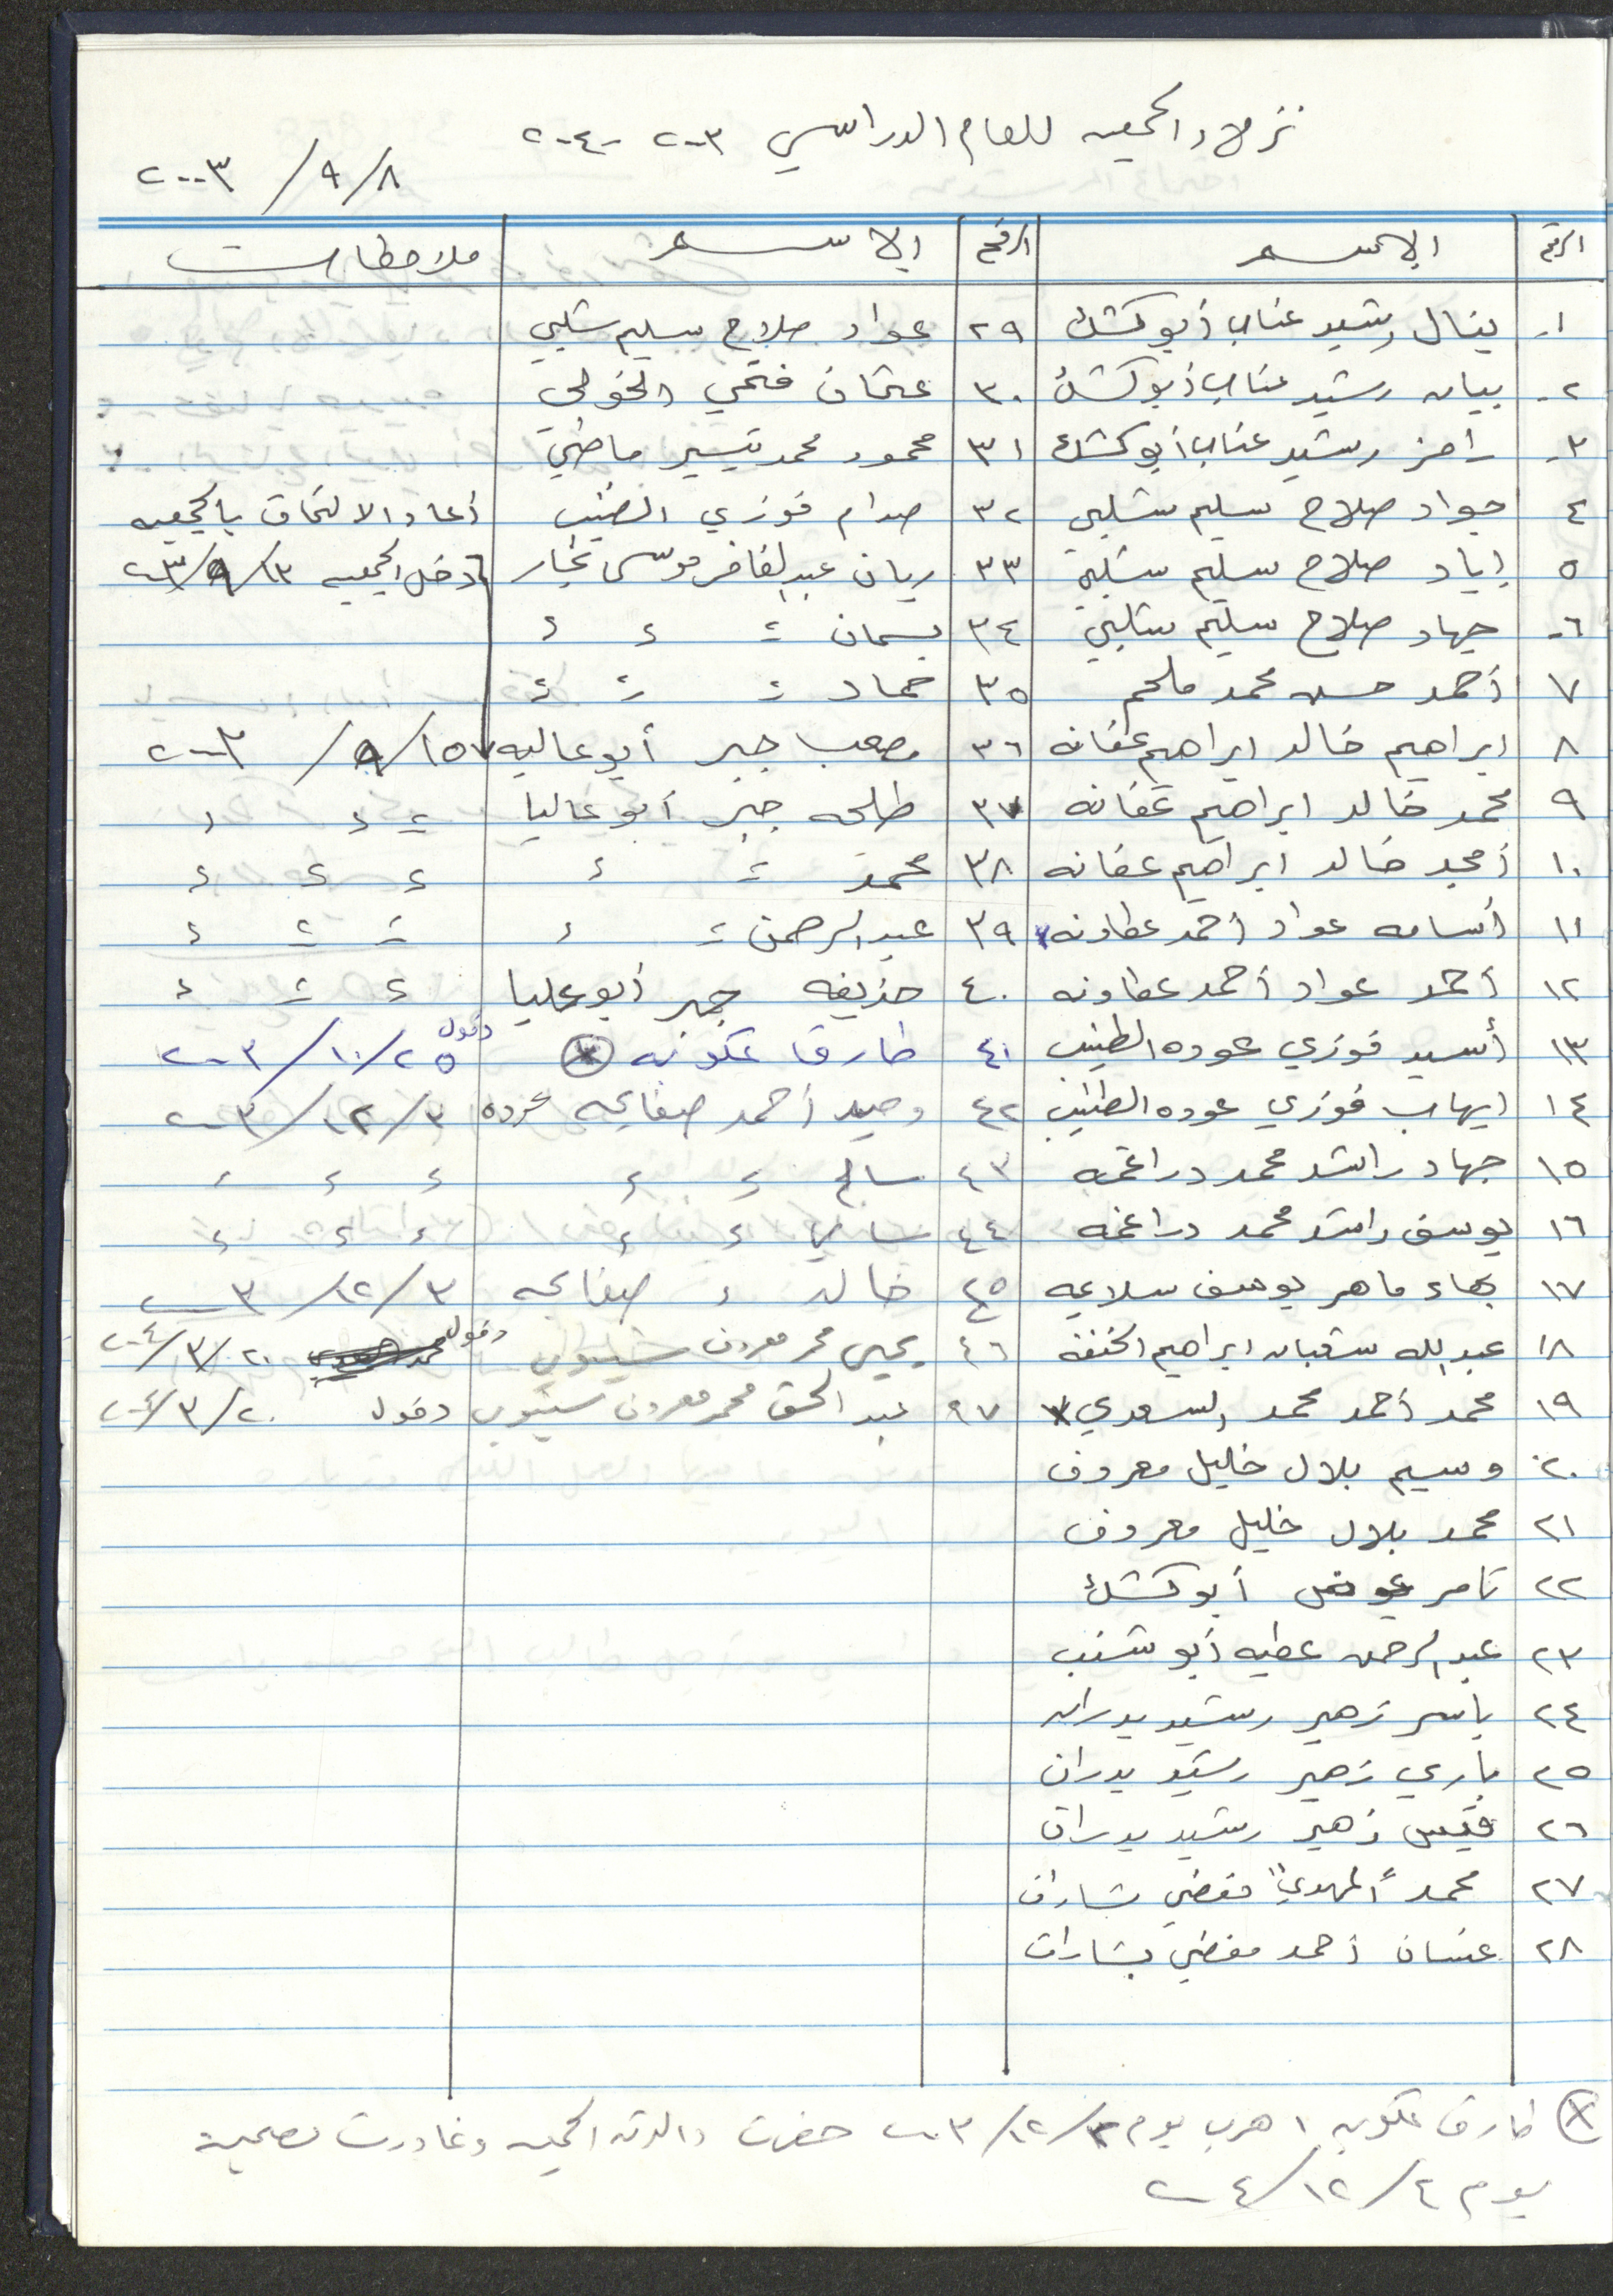 نزلاء الجمعيه للعام الدراسي ٢٠٠٣ - ٢٠٠٤
٢٠٠٣ / ٩ / ٨
الرقم الاسم الرقم الاسم ملاحظات
١- ينال رشيد عناب أبو كشك ٢٩ عواد صلاح سليم شلبي
٢- بيان رشيد عناب أبو كشك ٣٠ عثمان فتحي الخولي
٣- رامز رشيد عناب أبو كشك ٣١ محمود محمد تيسير ماضي
٤ جواد صلاح سليم شلبي ٣٢ صدام فوزي الطيب أعاد الالتحاق بالجمعيه
٥ إياد صلاح سليم شلبي ٣٣ ريان عبد الغافر موسى نجار دخل الجمعيه ١٣/٩/٢٠٠٣
٦- جهاد صلاح سليم شلبي ٣٤ بسمان = = =
٧ أحمد حسن محمد ملحم ٣٥ حماد = = =
٨ ابراهيم خالد ابراهيم عفانه ٣٦ مصعب جبر أبو عاليه ١٥/٩/٢٠٠٣
٩ محمد خالد ابراهيم عفانه ٣٧ طلحه جبر أبو عاليا = = =
١٠ أمجد خالد ابراهيم عفانه ٣٨ محمد = = = = =
١١ أسامه عواد أحمد عطاونه ٣٩ عبد الرحمن = = = = =
١٢ أحمد عواد أحمد عطاونه ٤٠ حذيفه جبر أبو عليا = = =
١٣ أسيد فوزي عوده الطيب ٤١ طارق عكوبه دخول ٢٥/١٠/٢٠٠٣
١٤ ايهاب فوزي عوده الطيب ٤٢ وحيد أحمد صفايحه عوده ٣/١٢/٢٠٠٣
١٥ جهاد راشد محمد دراغمه ٤٣ سالم = = = = =
١٦ يوسف راشد محمد دراغمه ٤٤ = = = = =
١٧ بهاء ماهر يوسف سلاعيه ٤٥ خالد = صفايحه ٣/١٢/٢٠٠٣
١٨ عبد الله شعبان ابراهيم ٤٦ يحيى محمد معروف دخول ٢٠/٣/٢٠٠٤
١٩ محمد أحمد محمد السعدي ٤٧ عبد الحق محمد معروف دخول ٢٠/٣/٢٠٠٤
٢٠ وسيم بلال خليل معروف
٢١ محمد بلال خليل معروف
٢٢ تامر عوض أبو كشك
٢٣ عبد الرحمن عطيه أبو شنب
٢٤ ياسر زهير رشيد بدران
٢٥ باري زهير رشيد بدران
٢٦ قيس زهير رشيد بدران
٢٧ محمد "المهدي" مفضي بشارات
٢٨ غسان أحمد مفضي بشارات
طارق عكوبه هرب يوم ٣/١٢/٢٠٠٣ حضرت والدته الجمعيه وغادرت بصحبته
يوم ٤/١٢/٢٠٠٤